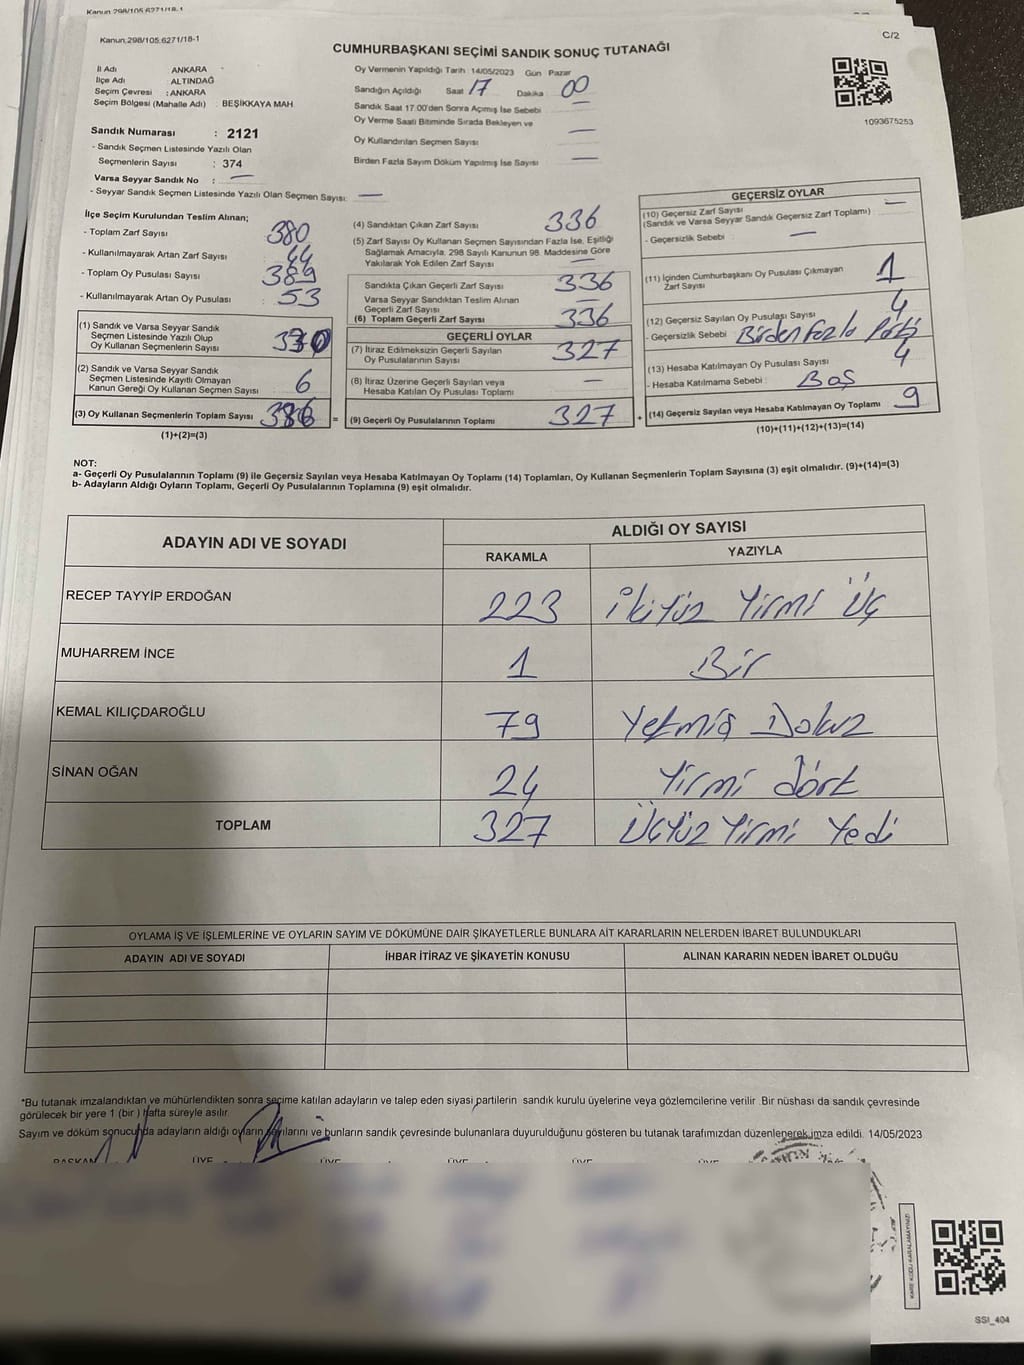 Kanun 298/105.6271/18-1
Kanun,298/105.6271/18-1
C/2
CUMHURBAŞKANI SEÇİMİ SANDIK SONUÇ TUTANAĞI
1093675253
İl Adı : ANKARA
İlçe Adı : ALTINDAĞ
Seçim Çevresi : ANKARA
Seçim Bölgesi (Mahalle Adı) : BEŞİKKAYA MAH.
Sandık Numarası : 2121
- Sandık Seçmen Listesinde Yazılı Olan
Seçmenlerin Sayısı : 374
Varsa Seyyar Sandık No : —
- Seyyar Sandık Seçmen Listesinde Yazılı Olan Seçmen Sayısı: —
Oy Vermenin Yapıldığı Tarih : 14/05/2023 Gün : Pazar
Sandığın Açıldığı Saat 17 Dakika 00
Sandık Saat 17:00'den Sonra Açımış İse Sebebi —
Oy Verme Saati Bitiminde Sırada Bekleyen ve
Oy Kullandırılan Seçmen Sayısı —
Birden Fazla Sayım Döküm Yapılmış İse Sayısı —
İlçe Seçim Kurulundan Teslim Alınan;
- Toplam Zarf Sayısı : 380
- Kullanılmayarak Artan Zarf Sayısı : 44
- Toplam Oy Pusulası Sayısı : 389
- Kullanılmayarak Artan Oy Pusulası : 53
(1) Sandık ve Varsa Seyyar Sandık
Seçmen Listesinde Yazılı Olup
Oy Kullanan Seçmenlerin Sayısı 330
(2) Sandık ve Varsa Seyyar Sandık
Seçmen Listesinde Kayıtlı Olmayan
Kanun Gereği Oy Kullanan Seçmen Sayısı 6
(3) Oy Kullanan Seçmenlerin Toplam Sayısı 336 =
(1)+(2)=(3)
(4) Sandıktan Çıkan Zarf Sayısı 336
(5) Zarf Sayısı Oy Kullanan Seçmen Sayısından Fazla İse, Eşitliği
Sağlamak Amacıyla, 298 Sayılı Kanunun 98. Maddesine Göre
Yakılarak Yok Edilen Zarf Sayısı —
Sandıkta Çıkan Geçerli Zarf Sayısı 336
Varsa Seyyar Sandıktan Teslim Alınan
Geçerli Zarf Sayısı —
(6) Toplam Geçerli Zarf Sayısı 336
GEÇERLİ OYLAR
(7) İtiraz Edilmeksizin Geçerli Sayılan
Oy Pusulalarının Sayısı 327
(8) İtiraz Üzerine Geçerli Sayılan veya
Hesaba Katılan Oy Pusulası Toplamı —
(9) Geçerli Oy Pusulalarının Toplamı 327 +
GEÇERSİZ OYLAR
(10) Geçersiz Zarf Sayısı
(Sandık ve Varsa Seyyar Sandık Geçersiz Zarf Toplamı) —
- Geçersizlik Sebebi : —
(11) İçinden Cumhurbaşkanı Oy Pusulası Çıkmayan
Zarf Sayısı 1
(12) Geçersiz Sayılan Oy Pusulası Sayısı 4
- Geçersizlik Sebebi : Birden Fazla Parti
(13) Hesaba Katılmayan Oy Pusulası Sayısı 4
- Hesaba Katılmama Sebebi : Boş
(14) Geçersiz Sayılan veya Hesaba Katılmayan Oy Toplamı 9
(10)+(11)+(12)+(13)=(14)
NOT:
a- Geçerli Oy Pusulalarının Toplamı (9) ile Geçersiz Sayılan veya Hesaba Katılmayan Oy Toplamı (14) Toplamları, Oy Kullanan Seçmenlerin Toplam Sayısına (3) eşit olmalıdır. (9)+(14)=(3)
b- Adayların Aldığı Oyların Toplamı, Geçerli Oy Pusulalarının Toplamına (9) eşit olmalıdır.
ADAYIN ADI VE SOYADI ALDIĞI OY SAYISI
RAKAMLA YAZIYLA
RECEP TAYYİP ERDOĞAN 223 İkiYüz Yirmi Üç
MUHARREM İNCE 1 Bir
KEMAL KILIÇDAROĞLU 79 Yetmiş Dokuz
SİNAN OĞAN 24 Yirmi dört
TOPLAM 327 ÜçYüz Yirmi Yedi
OYLAMA İŞ VE İŞLEMLERİNE VE OYLARIN SAYIM VE DÖKÜMÜNE DAİR ŞİKAYETLERLE BUNLARA AİT KARARLARIN NELERDEN İBARET BULUNDUKLARI
ADAYIN ADI VE SOYADI İHBAR İTİRAZ VE ŞİKAYETİN KONUSU ALINAN KARARIN NEDEN İBARET OLDUĞU
*Bu tutanak imzalandıktan ve mühürlendikten sonra seçime katılan adayların ve talep eden siyasi partilerin sandık kurulu üyelerine veya gözlemcilerine verilir. Bir nüshası da sandık çevresinde
görülecek bir yere 1 (bir) hafta süreyle asılır.
Sayım ve döküm sonucunda adayların aldığı oyların sayılarını ve bunların sandık çevresinde bulunanlara duyurulduğunu gösteren bu tutanak tarafımızdan düzenlenerek imza edildi. 14/05/2023
BAŞKAN ÜYE ÜYE ÜYE ÜYE ÜYE
KARE KODU KARALAMAYINIZ!
SSI_404